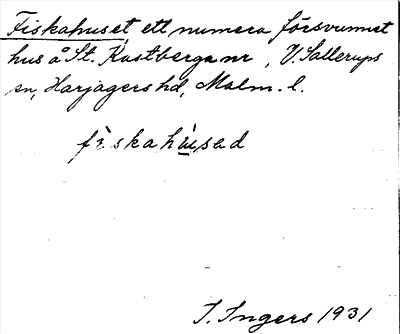 Fiskahuset, ett numera försvunnet
hus å St. Kastberga nr , V. Sallerups
sn, Harjagers hd, Malm. l.
fiskahusad
I. Ingers 1931